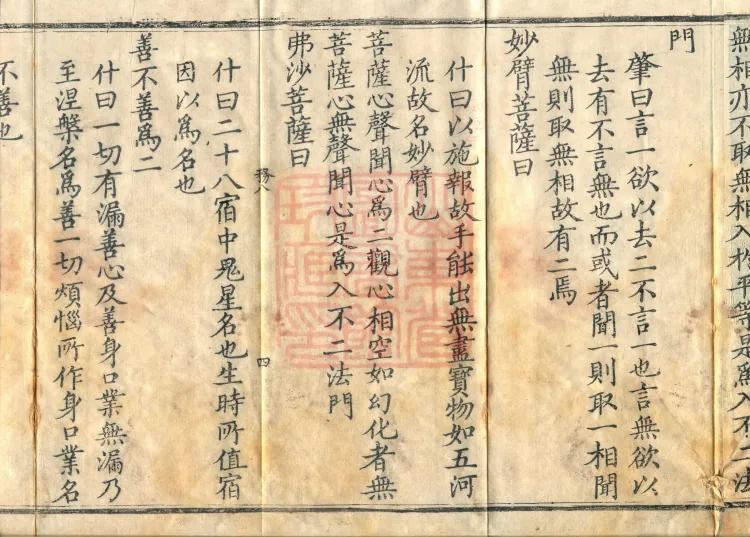 無相亦不取無相入於平等是為入不二法
門
肇曰言一欲以去二不言一也言無欲以
去有不言無也而或者聞一則取一相聞
無則取無相故有二焉
妙臂菩薩曰
什曰以施報故手能出無盡寶物如五河
流故名妙臂也
菩薩心聲聞心為二觀心相空如幻化者無
菩薩心無聲聞心是為入不二法門
弗沙菩薩曰
四
什曰二十八宿中鬼星名也生時所值宿
因以為名也
善不善為二
什曰一切有漏善心及善身口業無漏乃
至涅槃名為善一切煩惱所作身口業名
不善也